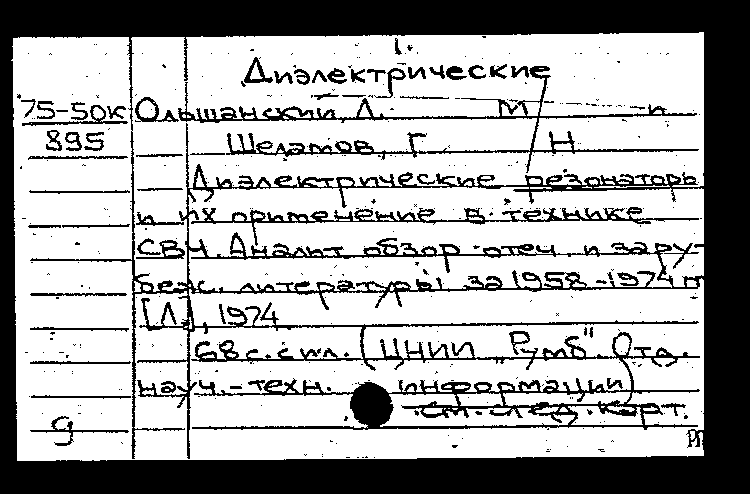 1.
Диэлектрические
75-50к Ольшанский, Л. М и
895 Шеламов, Г Н
Диэлектрические резонаторы
и их применение в технике
СВЧ. Аналит обзор отеч. и зару-
беж. литературы за 1958-1974 гг
[Л.], 1974.
68 с. с ил. (ЦНИИ „Румб". Отд.
науч.-техн. информации)
см. след. карт.
9